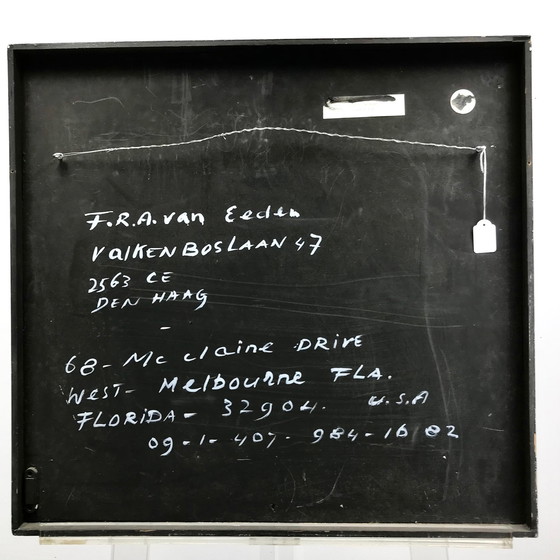 F.R.A. van Eeden
VALKENBOSLAAN 47
2563 CE
DEN HAAG
-
68- Mc claine DRIVE
WEST- MElbourne FLA.
FLORIDA- 32904. U.S.A
09-1-407- 984-1682